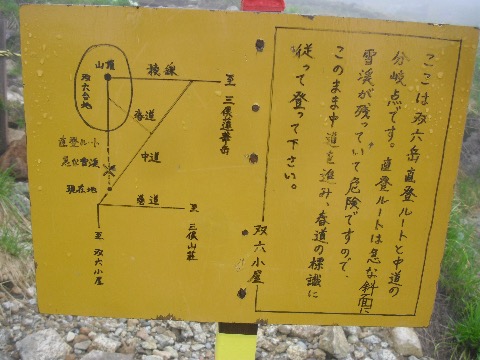 ここは双六岳直登ルートと中道の
分岐点です。直登ルートは急な斜面に
雪渓が残っていて危険ですので、
このまま中道を進み、春道の標識に
従って登って下さい。
双六小屋
山頂
双六台地
稜線
至 三俣蓮華岳
春道
中道
直登ルート
急な雪渓
現在地
巻道
至 三俣山荘
至 双六小屋